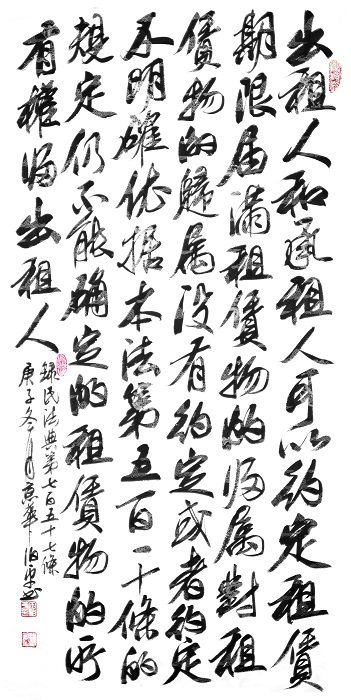 出租人和承租人可以約定租賃
期限届滿租賃物的归属對租
賃物的歸属没有約定或者約定
不明確依据本法第五百一十條的
規定仍不能确定的租賃物的所
有權归出租人
録民法典第七百五十七條
庚子冬月京華